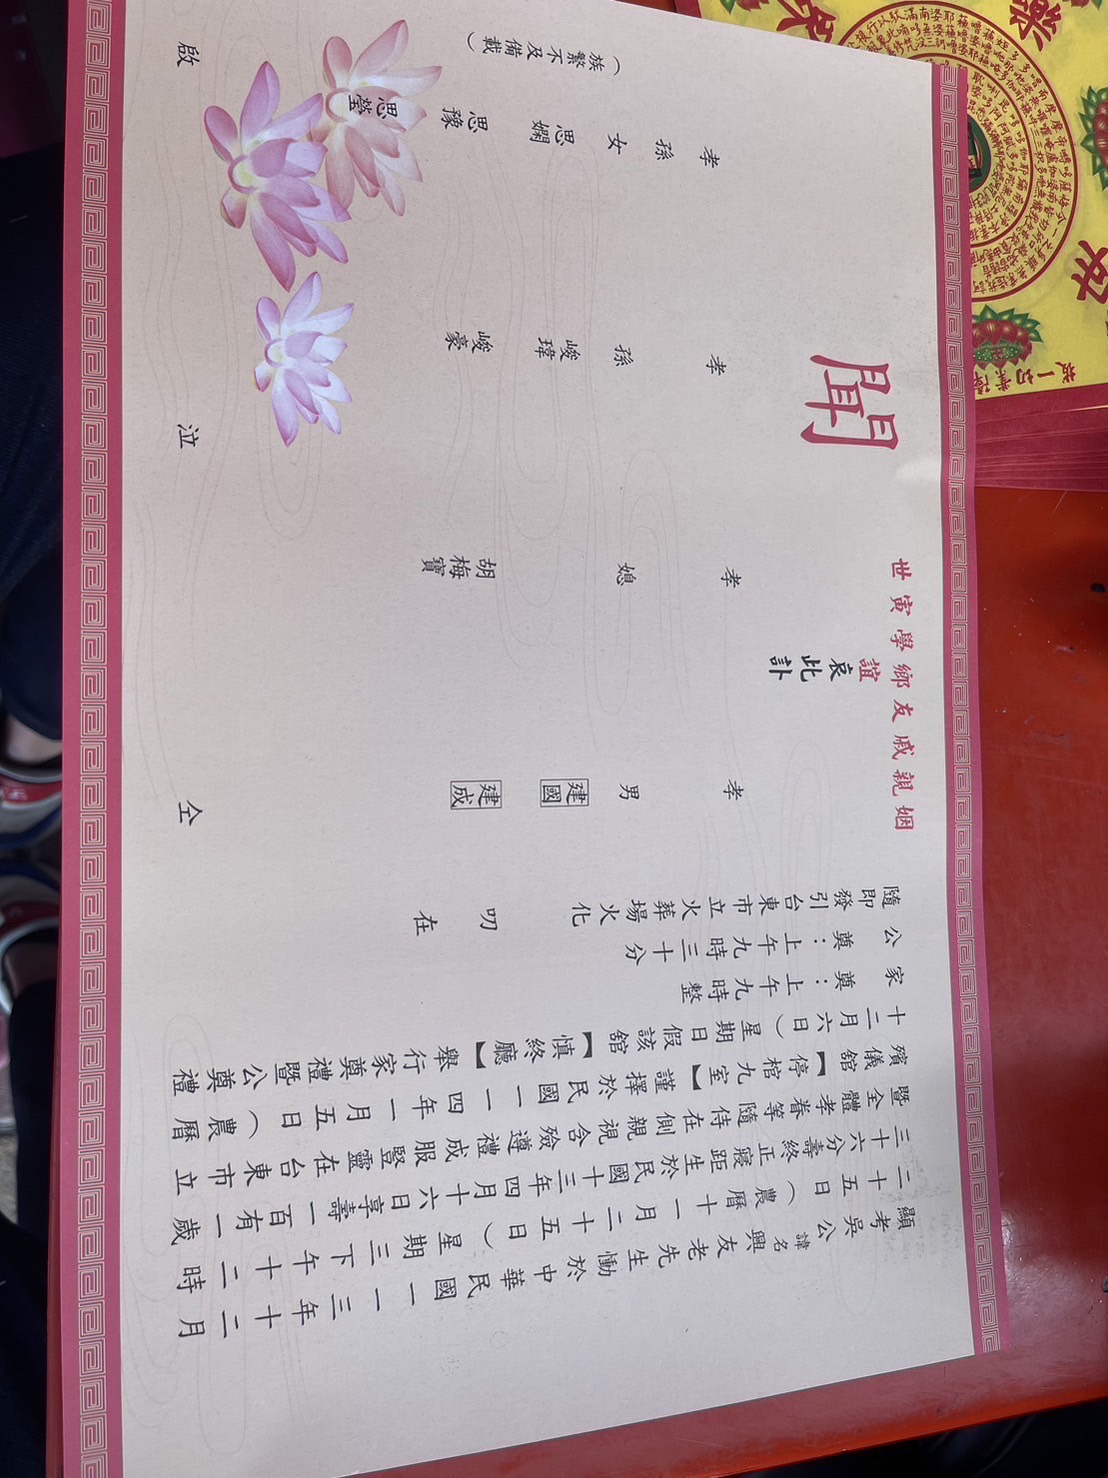 顯考吳公諱名興友老先生慟於中華民國一一三年十二月
二十五日（農曆十一月二十五日）星期三下午十二時
三十六分壽終正寢距生於民國十三年四月十六日享壽一百有一歲
暨全體孝眷等隨侍在側親視含殮遵禮成服豎靈在台東市立
殯儀館【停棺九室】謹擇於民國一一四年一月五日（農曆
十二月六日）星期日假該館【慎終廳】舉行家奠禮暨公奠禮
家奠：上午九時整
公奠：上午九時三十分
隨即發引台東市立火葬場火化　叨在
姻親戚友鄉學寅世
誼哀此訃
聞
孝男 建國 建成
孝媳 胡梅寶
孝孫 峻瑋 峻豪
孝孫女 思嫻 思豫 思瑩
（族繁不及備載）
仝泣啟